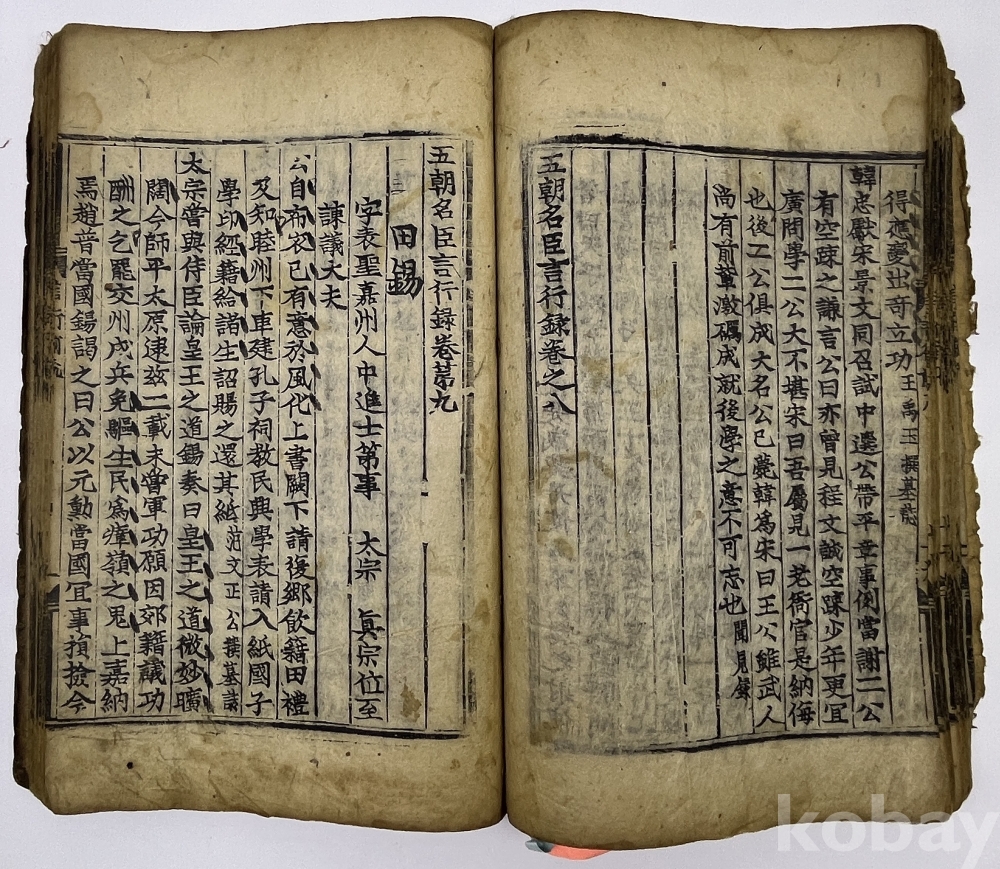 得應夢出奇立功 王禹玉撰墓誌
韓忠獻宋景文同召試中選公帶平章事例當謝二公
有空疎之謙言公曰亦曾見程文誠空疎少年更宜
廣問學二公大不堪宋曰吾屬見一老衙官是納侮
也後二公俱成大名公已薨韓爲宋曰王公雖武人
尚有前輩激礪成就後學之意不可忘也 聞見錄
五朝名臣言行録卷之八
五朝名臣言行録卷第九
田錫
字表聖嘉州人中進士第事 太宗 眞宗位至
諫議大夫
公自布衣已有意於風化上書闕下請復鄉飮籍田禮
及知睦州下車建孔子祠教民興學表請入紙國子
學印經籍給諸生詔賜之還其紙 范文正公撰墓誌
太宗嘗與侍臣論皇王之道錫奏曰皇王之道微妙曠
闊今師平太原逮玆二載未嘗軍功願因郊籍議功
酬之乞罷交州戍兵免驅生民爲瘴嶺之鬼上嘉納
焉趙普當國錫謁之曰公以元勳當國宜事損撿今
kobay